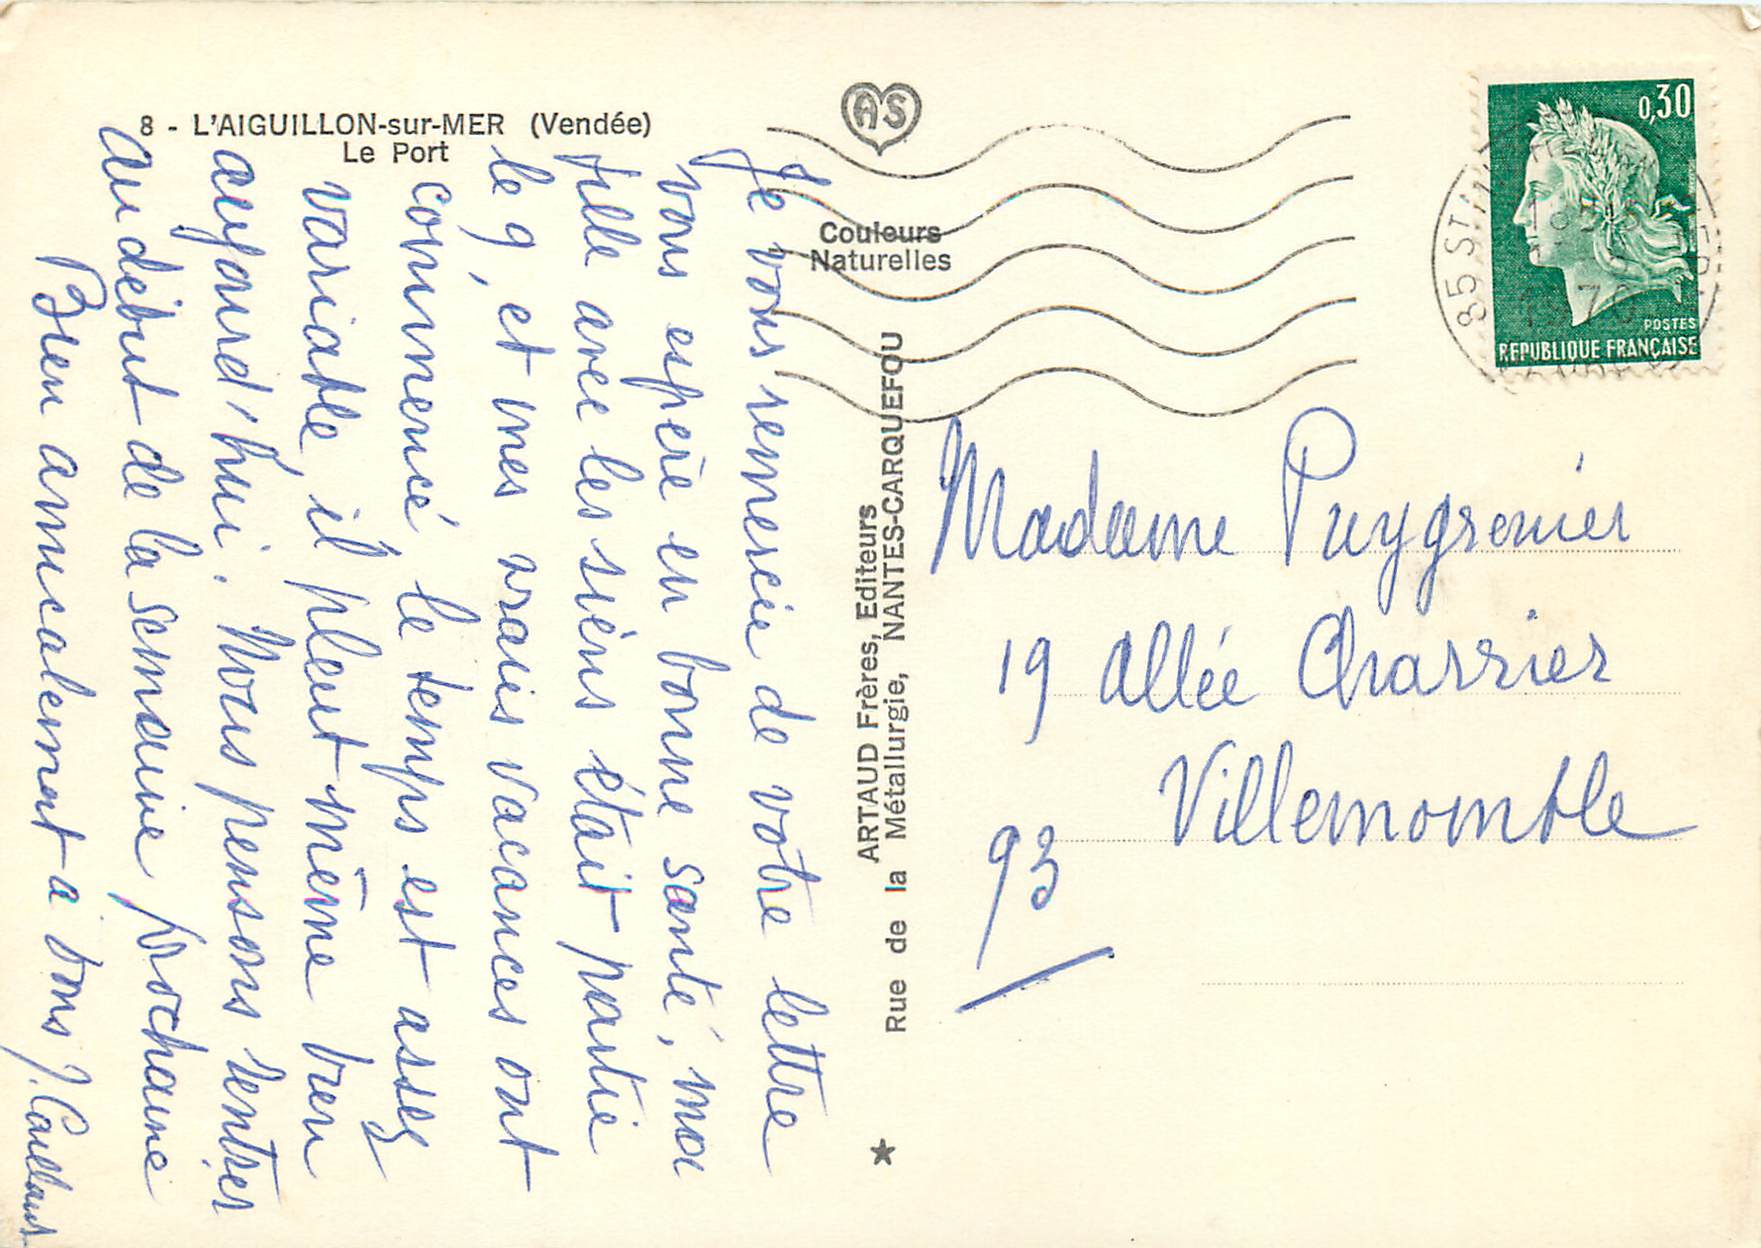 8 - L'AIGUILLON-sur-MER (Vendée)
Le Port
AS
Couleurs
Naturelles
ARTAUD Frères, Editeurs
Rue de la Métallurgie, NANTES-CARQUEFOU
0,30
POSTES
REPUBLIQUE FRANÇAISE
85 ST
1970
Je vous remercie de votre lettre
vous espère en bonne santé, ma
fille avec les siens était partie
le 9, et mes vraies vacances ont
commencé, le temps est assez
variable, il pleut même bien
aujourd'hui. Nous pensons rentrer
au début de la semaine prochaine
Bien amicalement à vous J.
Madame Puygrenier
19 allée Charrier
Villemomble
93